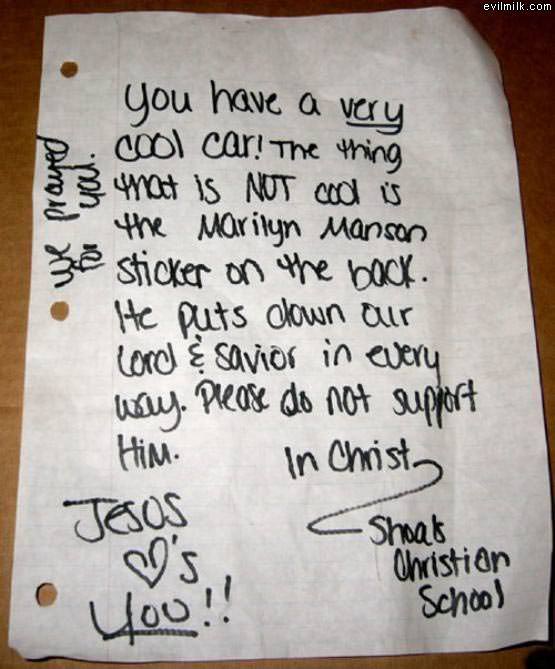 evilmilk.com
You have a very
cool car! The thing
that is NOT cool is
the Marilyn Manson
sticker on the back.
He puts down our
Lord & Savior in every
way. Please do not support
Him.
In Christ,
Shoals
Christian
School
Jesus
♡'s
You!!
We prayed
for you.